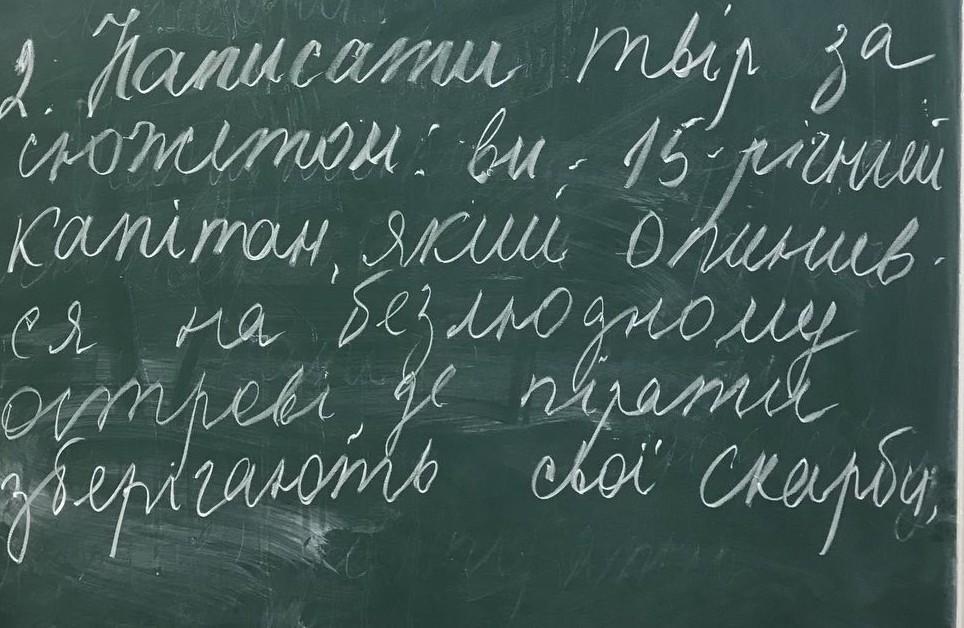 2. Написати твір за
сюжетом: ви - 15-річний
капітан, який опинив-
ся на безлюдному
острові де пірати
зберігають свої скарби,